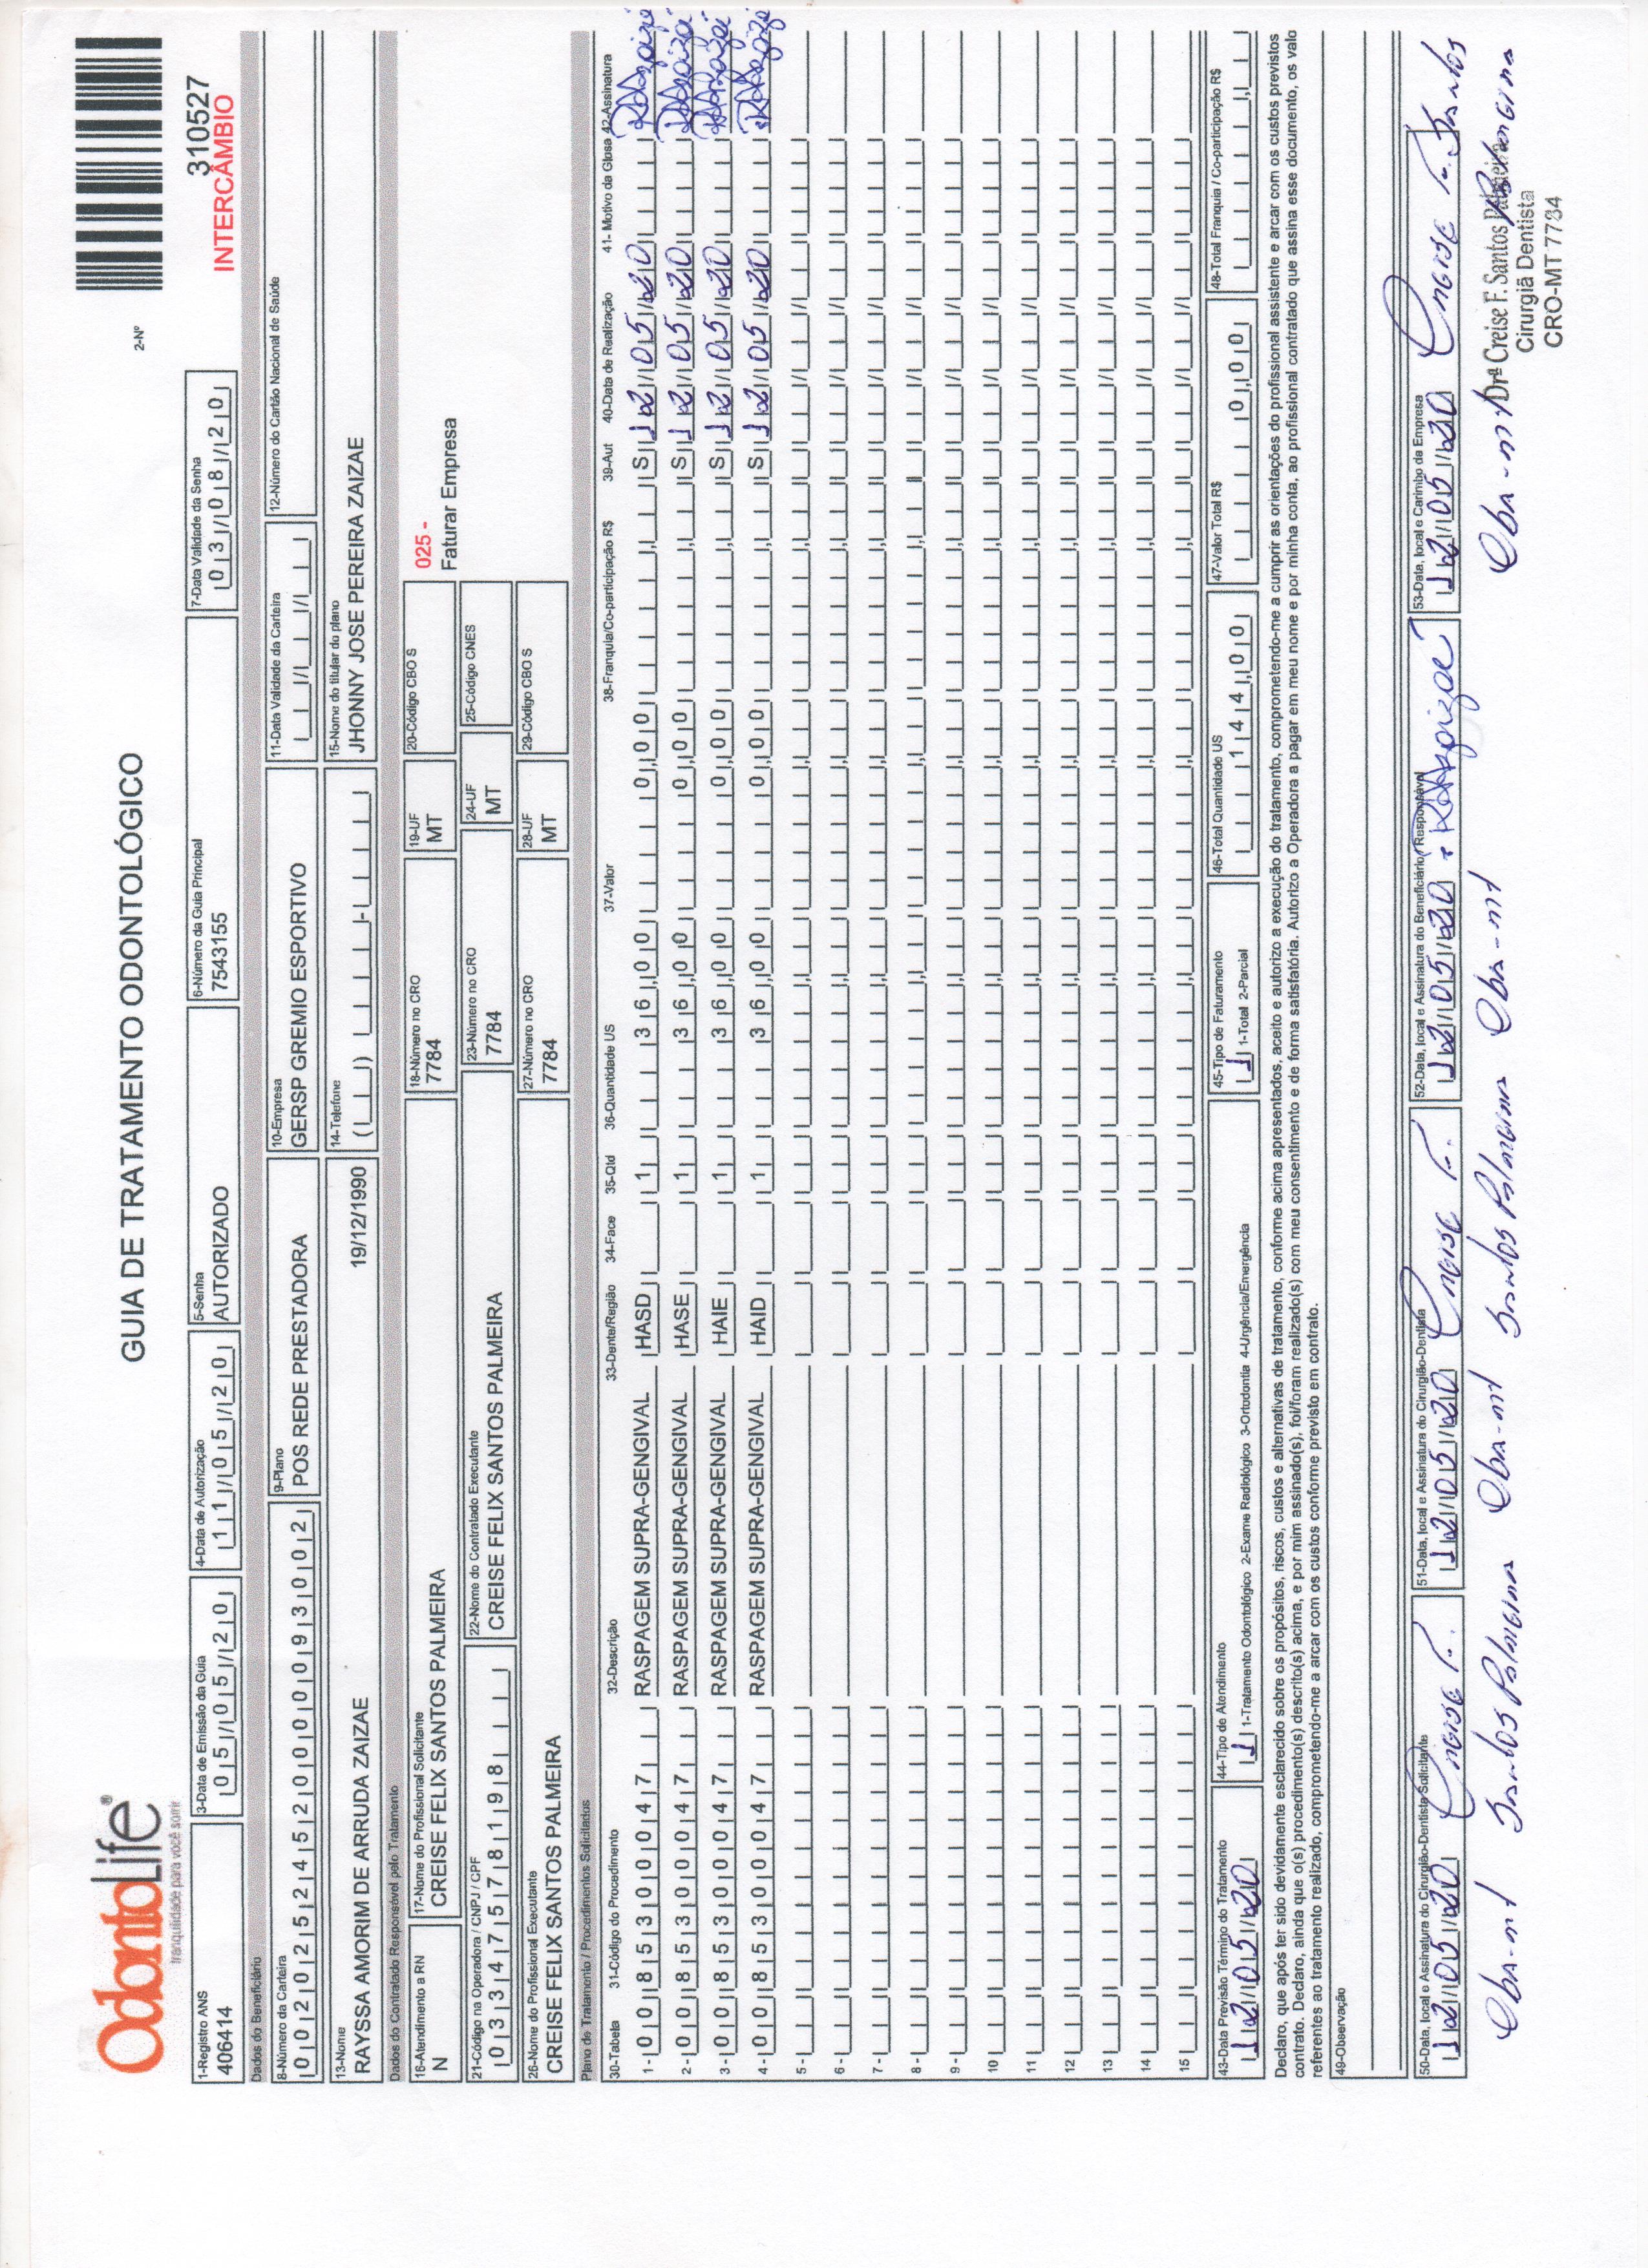 OdontoLife®
tranquilidade para você sorrir
GUIA DE TRATAMENTO ODONTOLÓGICO
2-Nº
310527
INTERCÂMBIO
1-Registro ANS
406414
3-Data de Emissão da Guia
05/05/20
4-Data de Autorização
11/05/20
5-Senha
AUTORIZADO
6-Número da Guia Principal
7543155
7-Data Validade da Senha
03/08/20
Dados do Beneficiário
8-Número da Carteira
00202524520000093002
9-Plano
POS REDE PRESTADORA
10-Empresa
GERSP GREMIO ESPORTIVO
11-Data Validade da Carteira
12-Número do Cartão Nacional de Saúde
13-Nome
RAYSSA AMORIM DE ARRUDA ZAIZAE
19/12/1990
14-Telefone
15-Nome do titular do plano
JHONNY JOSE PEREIRA ZAIZAE
Dados do Contratado Responsável pelo Tratamento
16-Atendimento a RN
N
17-Nome do Profissional Solicitante
CREISE FELIX SANTOS PALMEIRA
18-Número no CRO
7784
19-UF
MT
20-Código CBO S
025 -
Faturar Empresa
21-Código na Operadora / CNPJ / CPF
03347578198
22-Nome do Contratado Executante
CREISE FELIX SANTOS PALMEIRA
23-Número no CRO
7784
24-UF
MT
25-Código CNES
26-Nome do Profissional Executante
CREISE FELIX SANTOS PALMEIRA
27-Número no CRO
7784
28-UF
MT
29-Código CBO S
Plano de Tratamento / Procedimentos Solicitados
30-Tabela 31-Código do Procedimento 32-Descrição 33-Dente/Região 34-Face 35-Qtd 36-Quantidade US 37-Valor 38-Franquia/Co-participação R$ 39-Aut 40-Data de Realização 41- Motivo da Glosa 42-Assinatura
1 - 00 85300047 RASPAGEM SUPRA-GENGIVAL HASD 1 36,00 0,00 S 12/05/20
2 - 00 85300047 RASPAGEM SUPRA-GENGIVAL HASE 1 36,00 0,00 S 12/05/20
3 - 00 85300047 RASPAGEM SUPRA-GENGIVAL HAIE 1 36,00 0,00 S 12/05/20
4 - 00 85300047 RASPAGEM SUPRA-GENGIVAL HAID 1 36,00 0,00 S 12/05/20
5 -
6 -
7 -
8 -
9 -
10
11
12
13
14
15
43-Data Previsão Término do Tratamento
12/05/20
44-Tipo de Atendimento
1 1-Tratamento Odontológico 2-Exame Radiológico 3-Ortodontia 4-Urgência/Emergência
45-Tipo de Faturamento
1 1-Total 2-Parcial
46-Total Quantidade US
144,00
47-Valor Total R$
0,00
48-Total Franquia / Co-participação R$
Declaro, que após ter sido devidamente esclarecido sobre os propósitos, riscos, custos e alternativas de tratamento, conforme acima apresentados, aceito e autorizo a execução do tratamento, comprometendo-me a cumprir as orientações do profissional assistente e arcar com os custos previstos
contrato. Declaro, ainda que o(s) procedimento(s) descrito(s) acima, e por mim assinado(s), foi/foram realizado(s) com meu consentimento e de forma satisfatória. Autorizo a Operadora a pagar em meu nome e por minha conta, ao profissional contratado que assina esse documento, os valo
referentes ao tratamento realizado, comprometendo-me a arcar com os custos conforme previsto em contrato.
49-Observação
50-Data, local e Assinatura do Cirurgião-Dentista Solicitante
12/05/20 Creise F.
Cba-mt Santos Palmeira
51-Data, local e Assinatura do Cirurgião-Dentista
12/05/20 Creise F.
Cba-mt Santos Palmeira
52-Data, local e Assinatura do Beneficiário/Responsável
12/05/20
Cba-mt
53-Data, local e Carimbo da Empresa
12/05/20 Creise F. Santos
Cba-mt Palmeira
Drª Creise F. Santos Palmeira
Cirurgiã Dentista
CRO-MT 7784